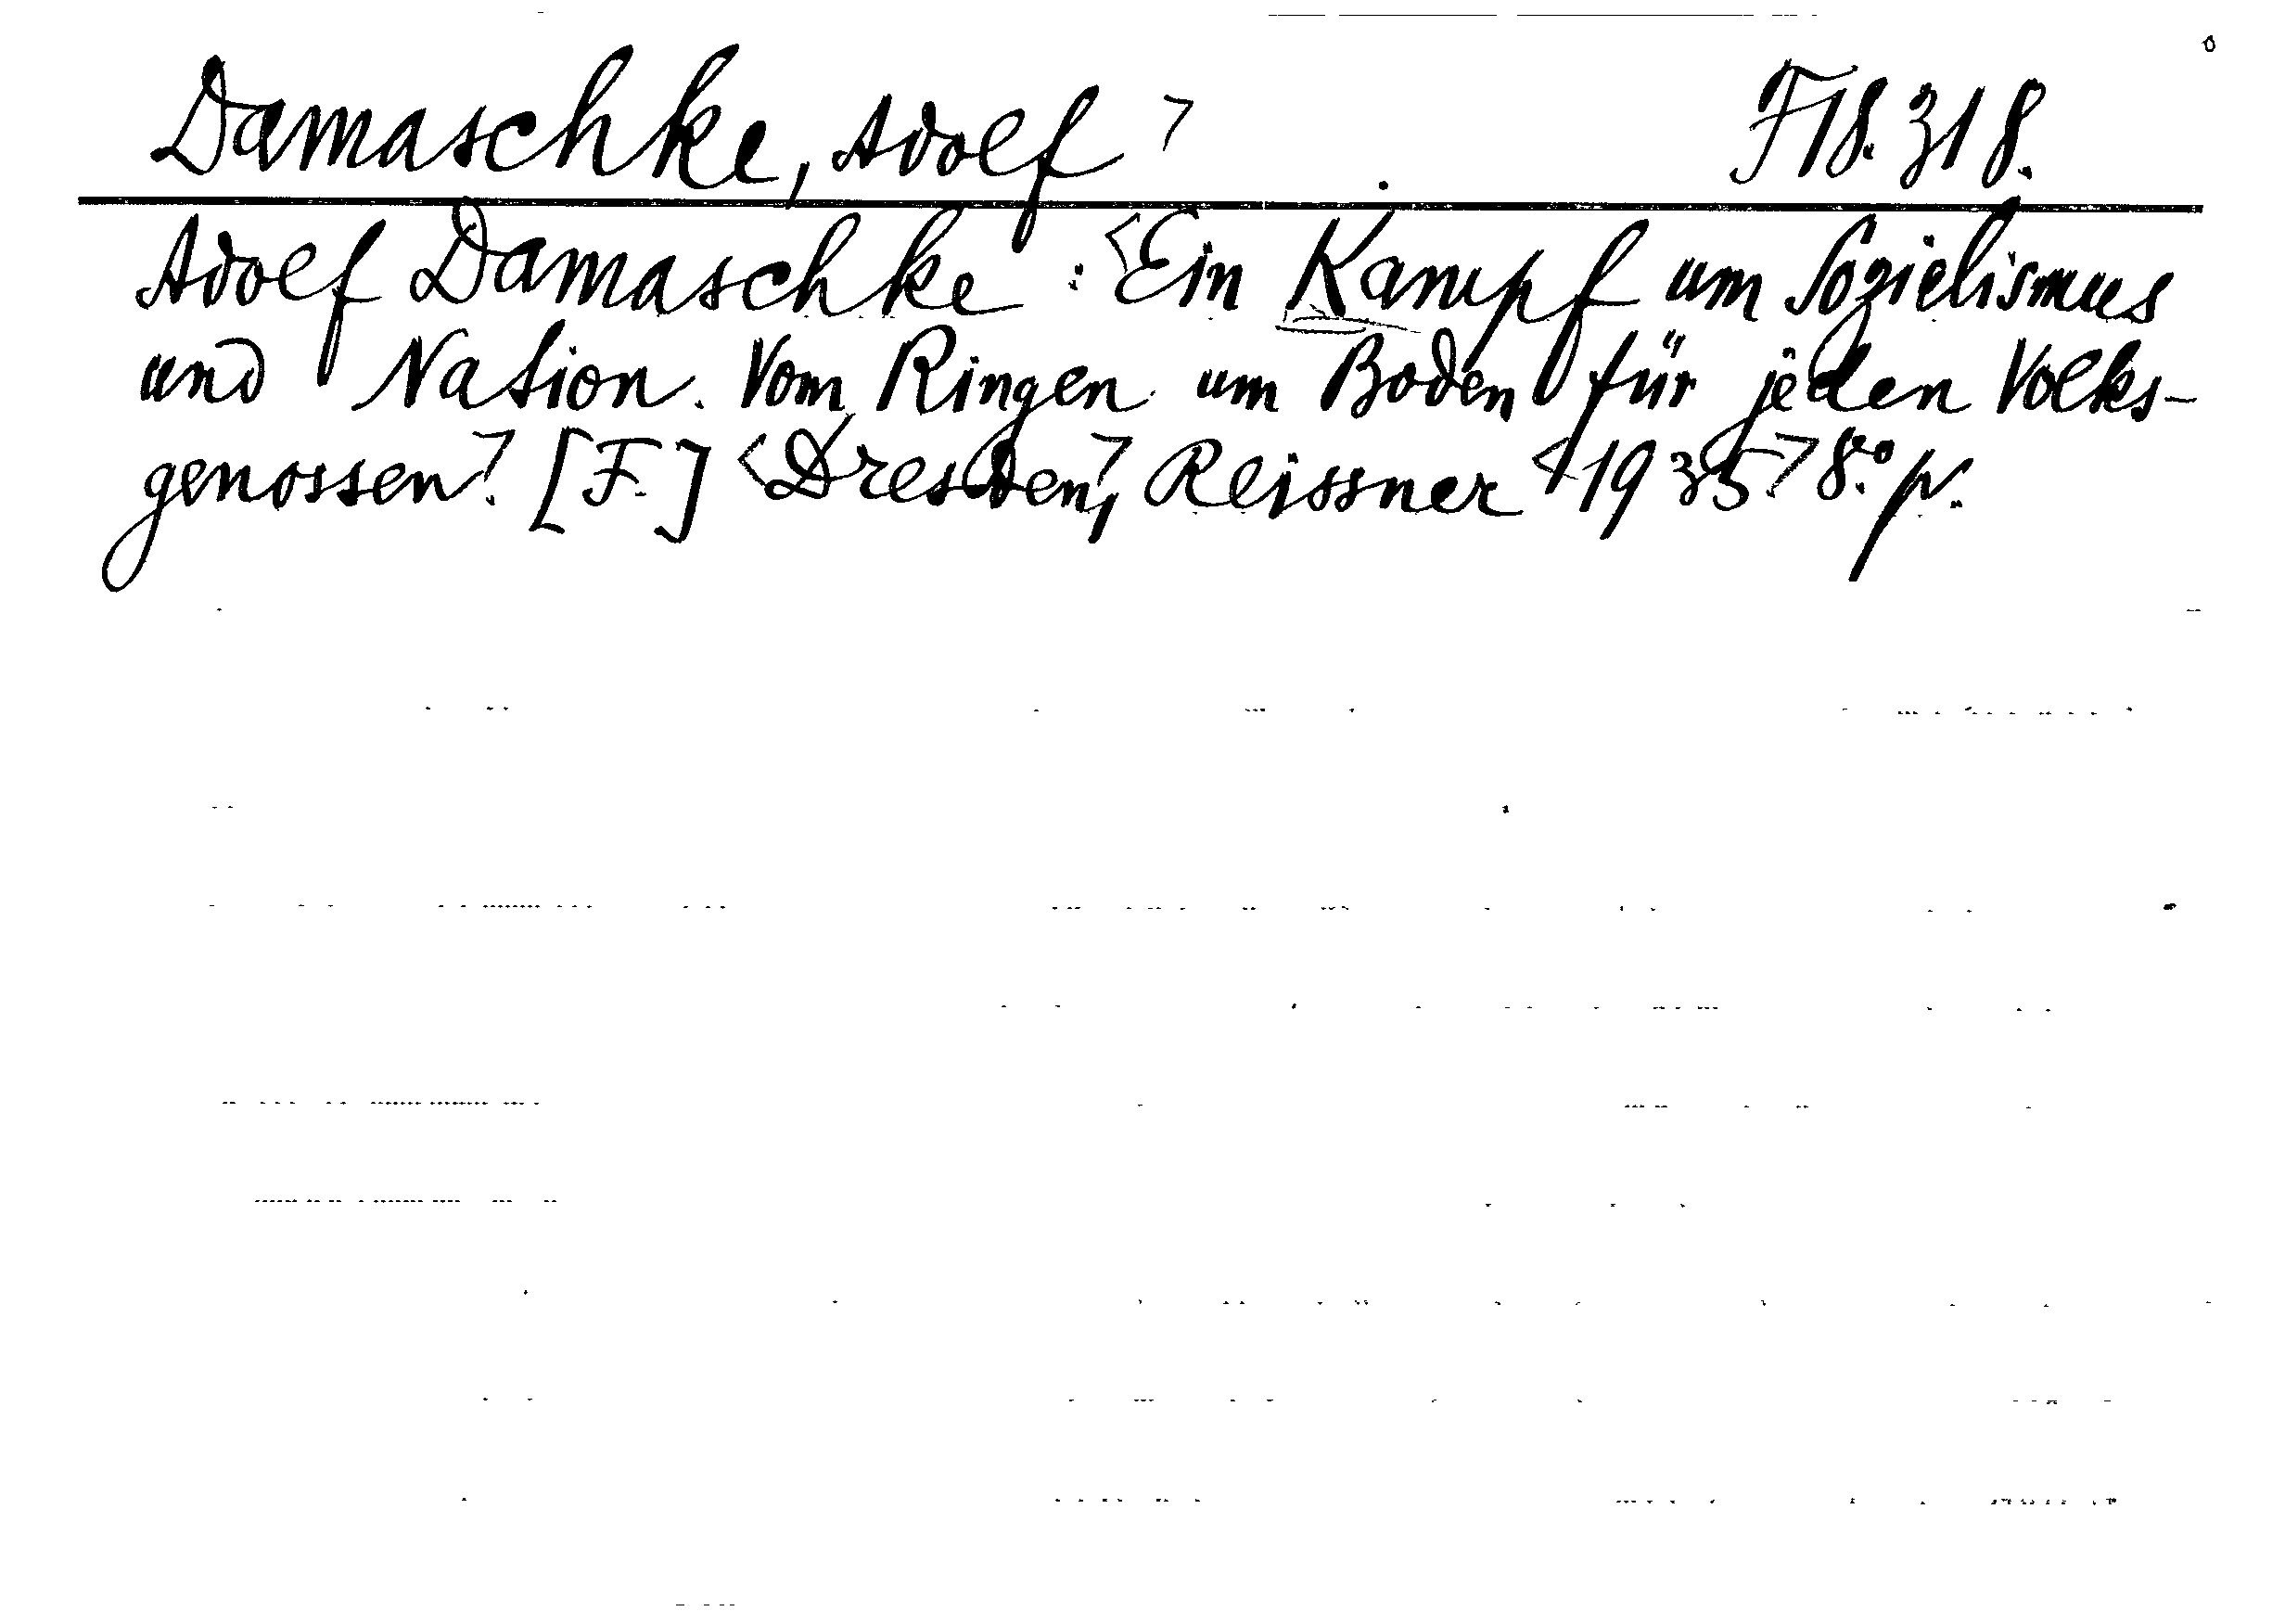 Damaschke, Adolf > F18.318.
Adolf Damaschke : <Ein Kampf um Sozialismus
und Nation. Vom Ringen um Boden für jeden Volks-
genossen>. [F.] <Dresden>, Reissner <1935> 8.° p.